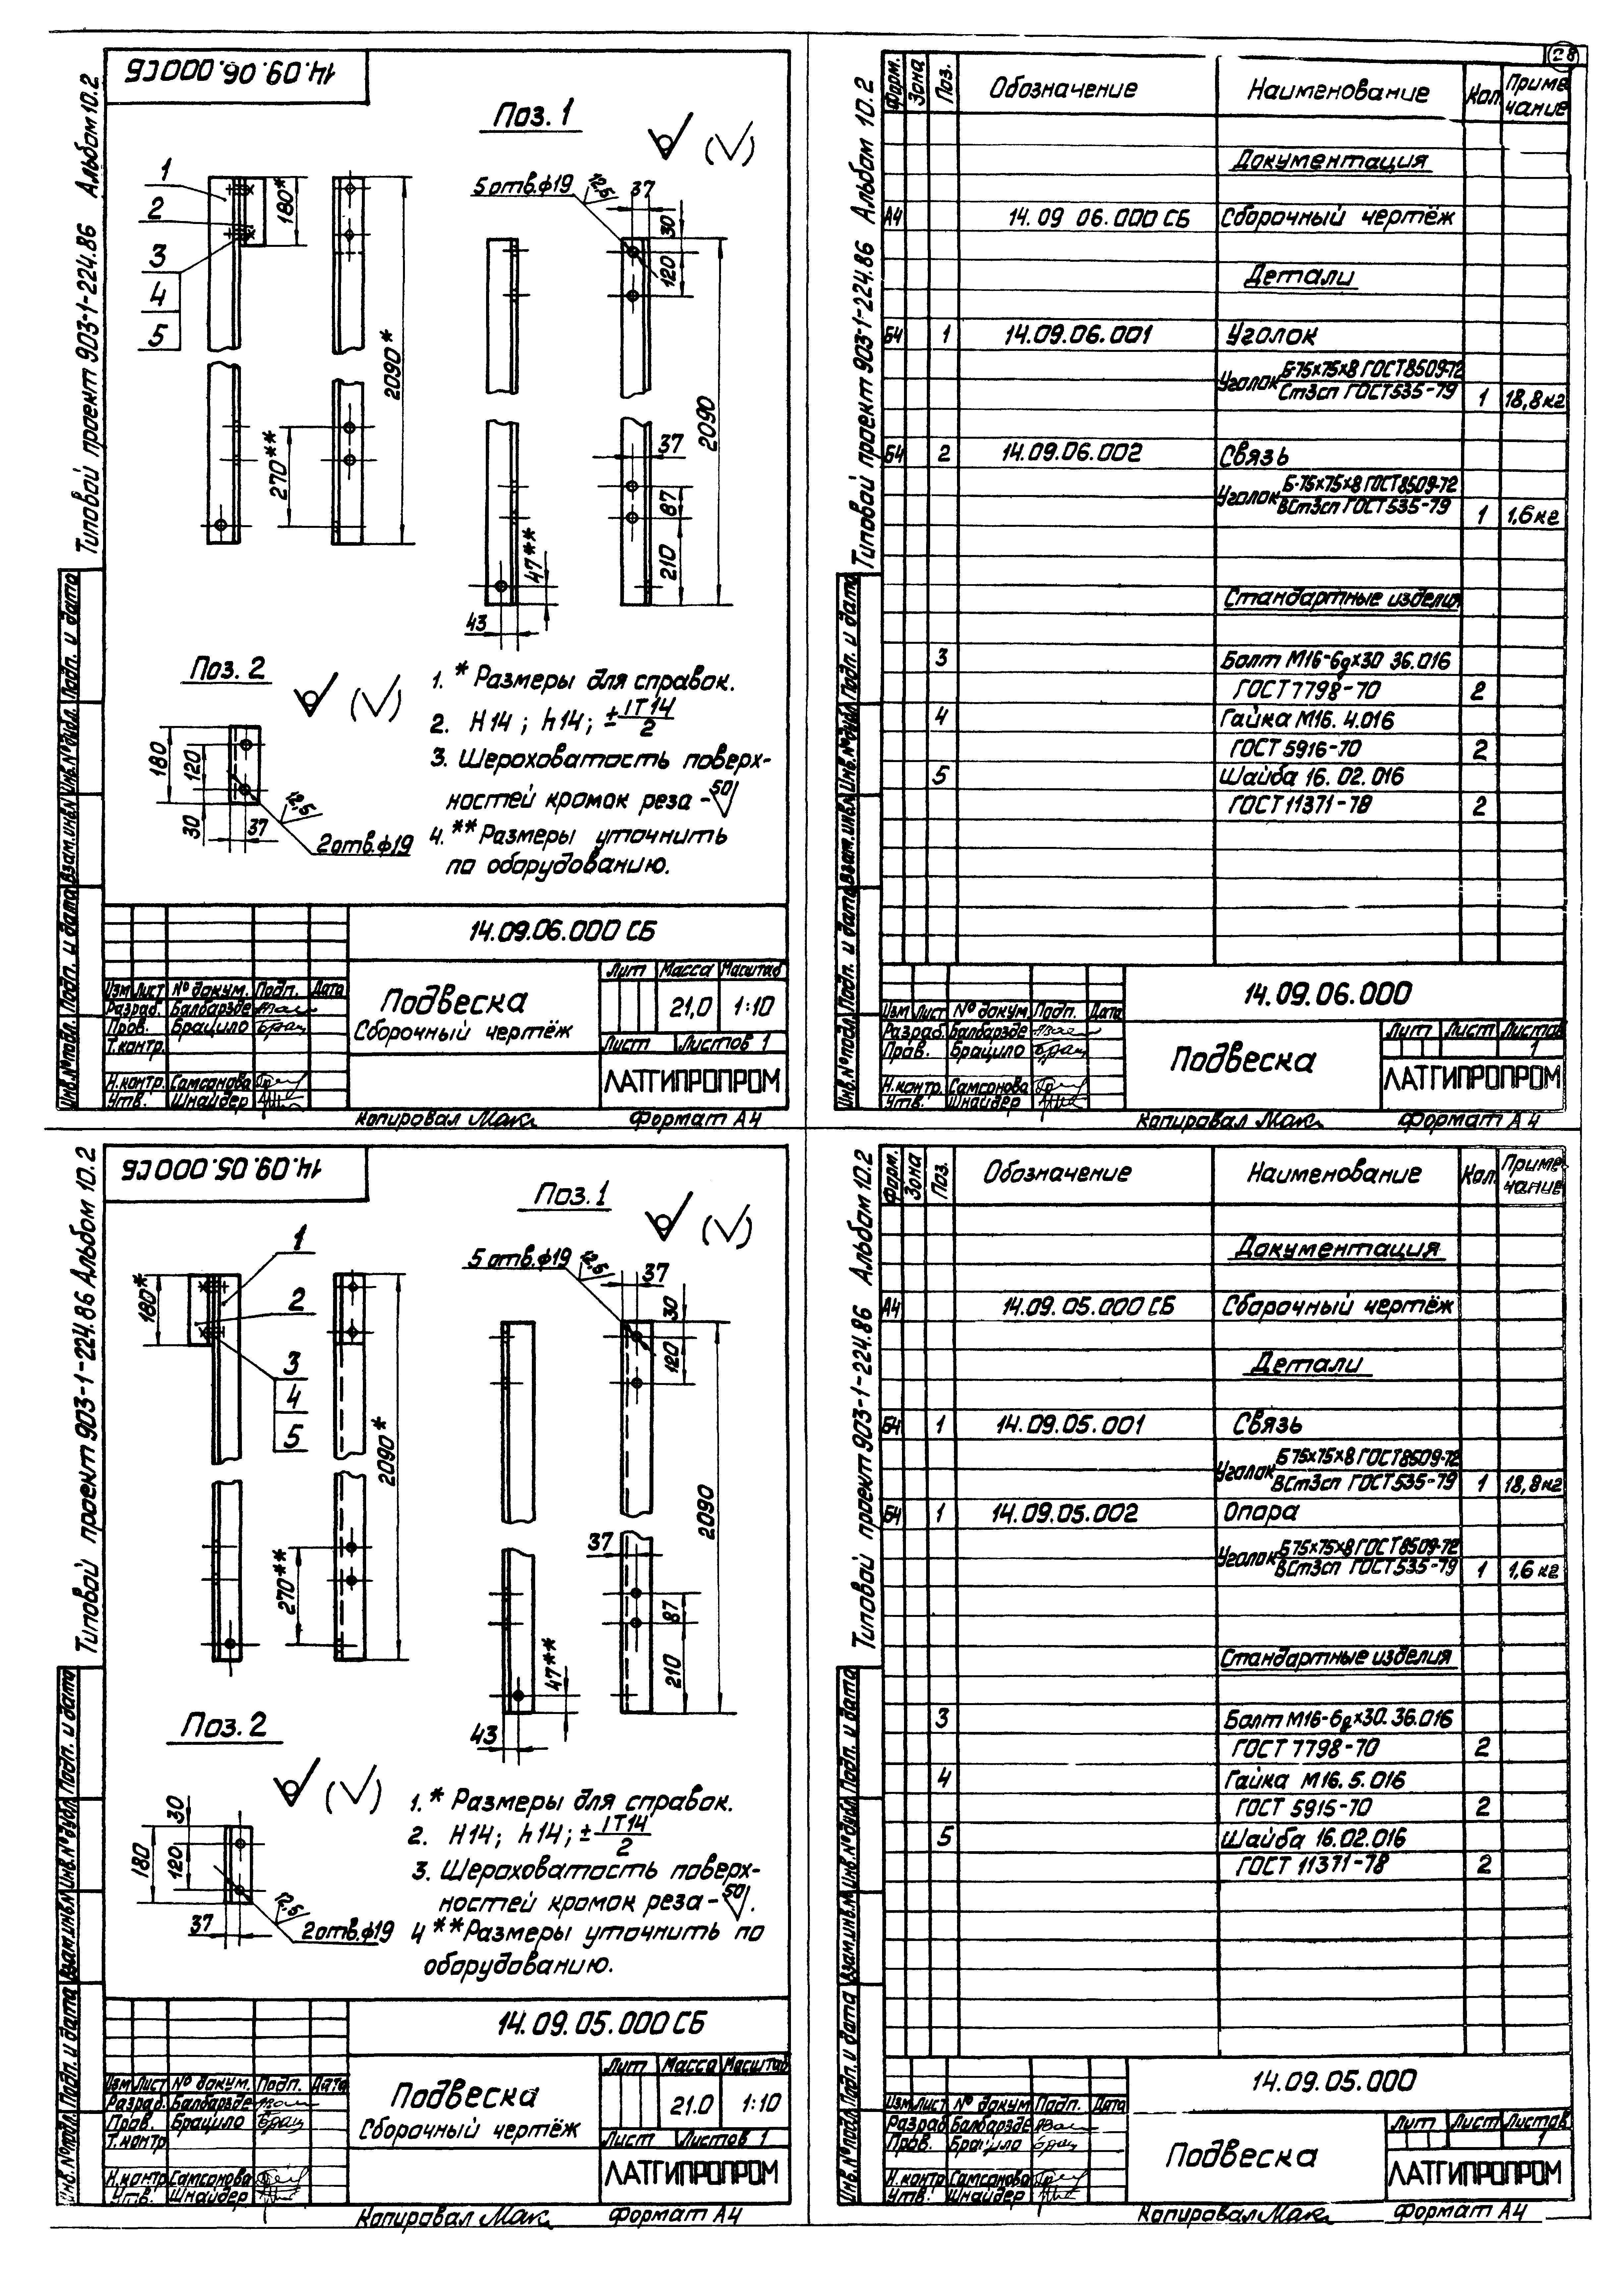 28
14.09.06.000СБ
Типовой проект 903-1-224.86 Альбом 10.2
Поз. 1
1
2
3
4
5
180*
2090*
270**
5 отв. ф19
12,5
37
30
120
2090
37
87
210
47**
43
Поз. 2
180
120
30
37
12,5
2 отв. ф19
1. * Размеры для справок.
2. H14; h14; ± IT14/2
3. Шероховатость поверх-
ностей кромок реза - 50
4. ** Размеры уточнить
по оборудованию.
Инв.№подл. Подп. и дата Взам.инв.№ Инв.№дубл. Подп. и дата
14.09.06.000 СБ
Изм Лист № докум. Подп. Дата
Разраб. Балбарзде
Пров. Брацило
Т.контр.
Н.контр. Самсонова
Утв. Шнайдер
Подвеска
Сборочный чертёж
Лит Масса Масштаб
21,0 1:10
Лист Листов 1
ЛАТГИПРОПРОМ
Копировал Макс Формат А4
Типовой проект 903-1-224.86 Альбом 10.2
Форм. Зона Поз. Обозначение Наименование Кол. Приме-
чание
Документация
А4 14.09 06.000 СБ Сборочный чертёж
Детали
Б4 1 14.09.06.001 Уголок
Уголок Б-75х75х8 ГОСТ8509-72
Ст3сп ГОСТ535-79 1 18,8кг
Б4 2 14.09.06.002 Связь
Уголок Б-75х75х8 ГОСТ8509-72
ВСт3сп ГОСТ535-79 1 1,6кг
Стандартные изделия
3 Болт М16-6gх30 36.016
ГОСТ7798-70 2
4 Гайка М16. 4.016
ГОСТ5916-70 2
5 Шайба 16. 02. 016
ГОСТ11371-78 2
Инв.№подл. Подп. и дата Взам.инв.№ Инв.№дубл. Подп. и дата
14.09.06.000
Изм Лист № докум. Подп. Дата
Разраб. Балбарзде
Пров. Брацило
Н.контр. Самсонова
Утв. Шнайдер
Подвеска
Лит Лист Листов
1
ЛАТГИПРОПРОМ
Копировал Макс Формат А4
14.09.05.000СБ
Типовой проект 903-1-224.86 Альбом 10.2
Поз. 1
1
2
3
4
5
180*
2090*
270**
5 отв. ф19
12,5
37
30
120
2090
37
87
210
47**
43
Поз. 2
30
120
180
37
12,5
2 отв. ф19
1. * Размеры для справок.
2. H14; h14; ± IT14/2
3. Шероховатость поверх-
ностей кромок реза - 50.
4 ** Размеры уточнить по
оборудованию.
Инв.№подл. Подп. и дата Взам.инв.№ Инв.№дубл. Подп. и дата
14.09.05.000СБ
Изм Лист № докум. Подп. Дата
Разраб. Балбарзде
Пров. Брацило
Т.контр
Н.контр Самсонова
Утв. Шнайдер
Подвеска
Сборочный чертёж
Лит Масса Масштаб
21.0 1:10
Лист Листов 1
ЛАТГИПРОПРОМ
Копировал Макс Формат А4
Типовой проект 903-1-224.86 Альбом 10.2
Форм. Зона Поз. Обозначение Наименование Кол. Приме-
чание
Документация
А4 14.09.05.000 СБ Сборочный чертёж
Детали
Б4 1 14.09.05.001 Связь
Уголок Б 75х75х8 ГОСТ8509-72
ВСт3сп ГОСТ535-79 1 18,8кг
Б4 1 14.09.05.002 Опора
Уголок Б 75х75х8 ГОСТ8509-72
ВСт3сп ГОСТ535-79 1 1,6 кг
Стандартные изделия
3 Болт М16-6gх30.36.016
ГОСТ 7798-70 2
4 Гайка М16. 5. 016
ГОСТ 5915-70 2
5 Шайба 16.02.016
ГОСТ 11371-78 2
Инв.№подл. Подп. и дата Взам.инв.№ Инв.№дубл. Подп. и дата
14.09.05.000
Изм Лист № докум Подп. Дата
Разраб Балбарзде
Пров. Брацило
Н.контр Самсонова
Утв. Шнайдер
Подвеска
Лит Лист Листов
1
ЛАТГИПРОПРОМ
Копировал Макс Формат А4